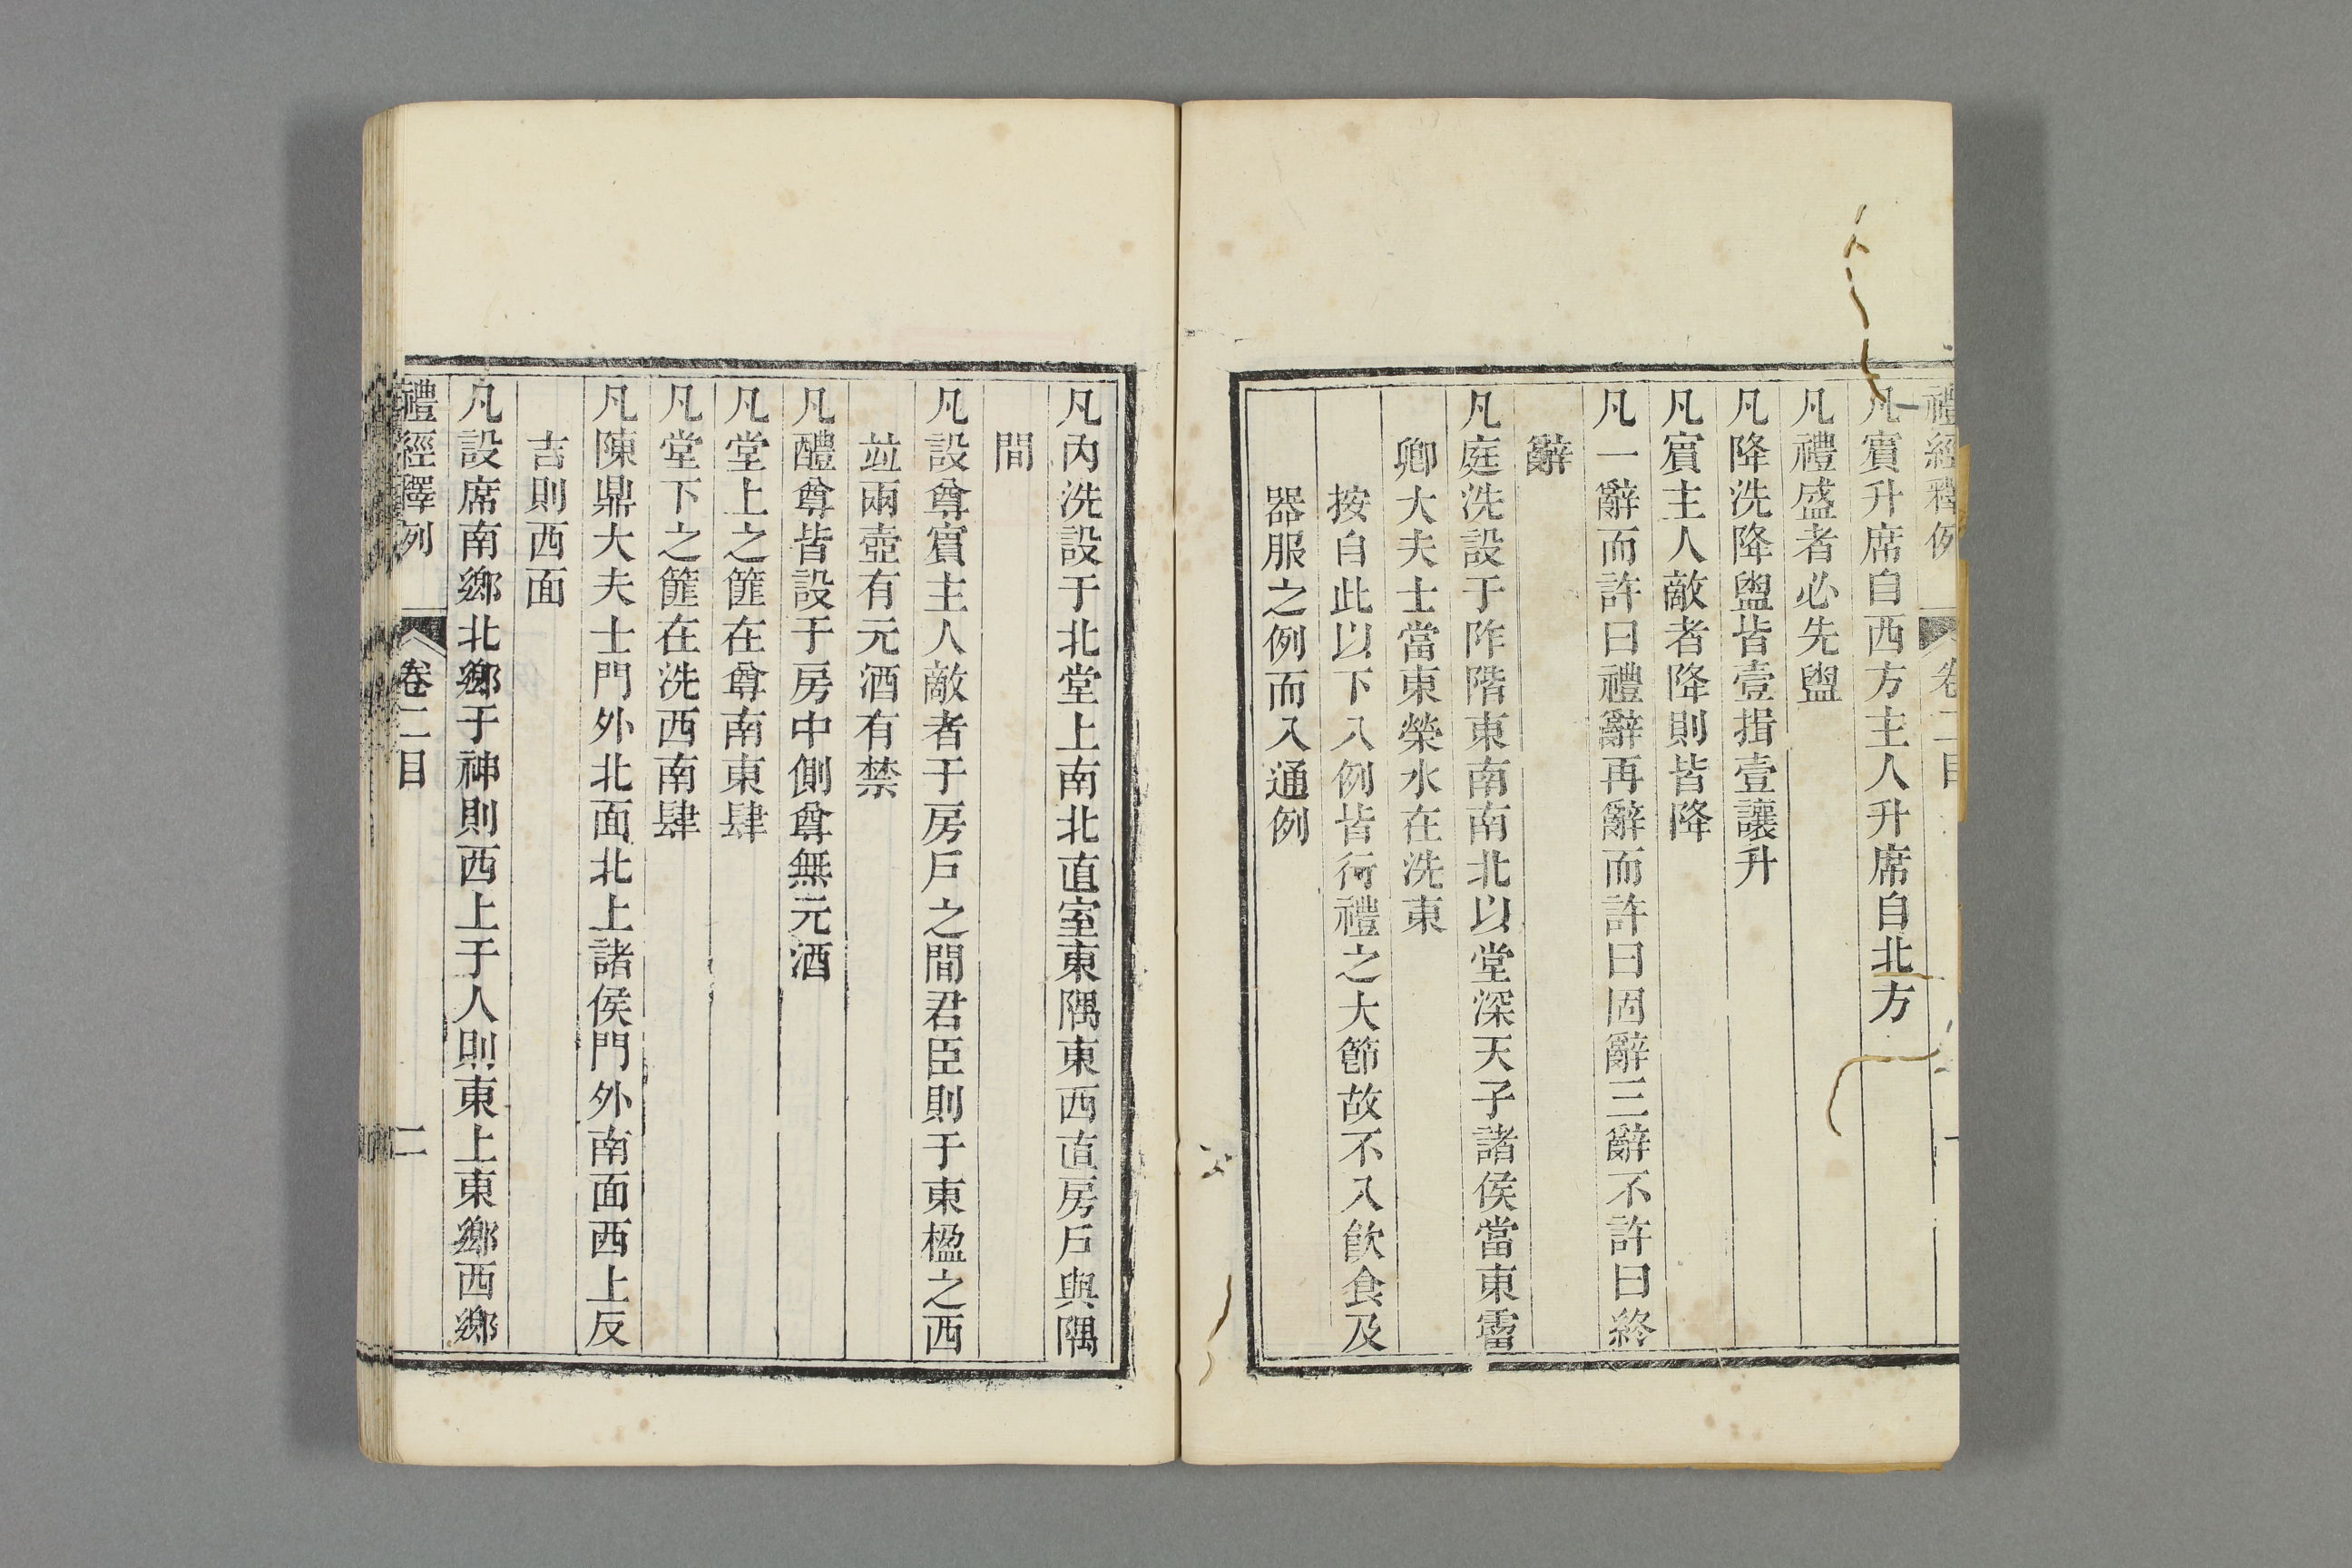 禮經釋例 卷二目
凡賓升席自西方主人升席自北方
凡禮盛者必先盥
凡降洗降盥皆壹揖壹讓升
凡賓主人敵者降則皆降
凡一辭而許曰禮辭再辭而許曰固辭三辭不許曰終
辭
凡庭洗設于阼階東南南北以堂深天子諸侯當東霤
卿大夫士當東榮水在洗東
按自此以下入例皆行禮之大節故不入飲食及
器服之例而入通例
凡內洗設于北堂上南北直室東隅東西直房戶與隅
間
凡設尊賓主人敵者于房戶之間君臣則于東楹之西
並兩壺有元酒有禁
凡醴尊皆設于房中側尊無元酒
凡堂上之篚在尊南東肆
凡堂下之篚在洗西南肆
凡陳鼎大夫士門外北面北上諸侯門外南面西上反
吉則西面
凡設席南鄉北鄉于神則西上于人則東上東鄉西鄉
禮經釋例 卷二目 二